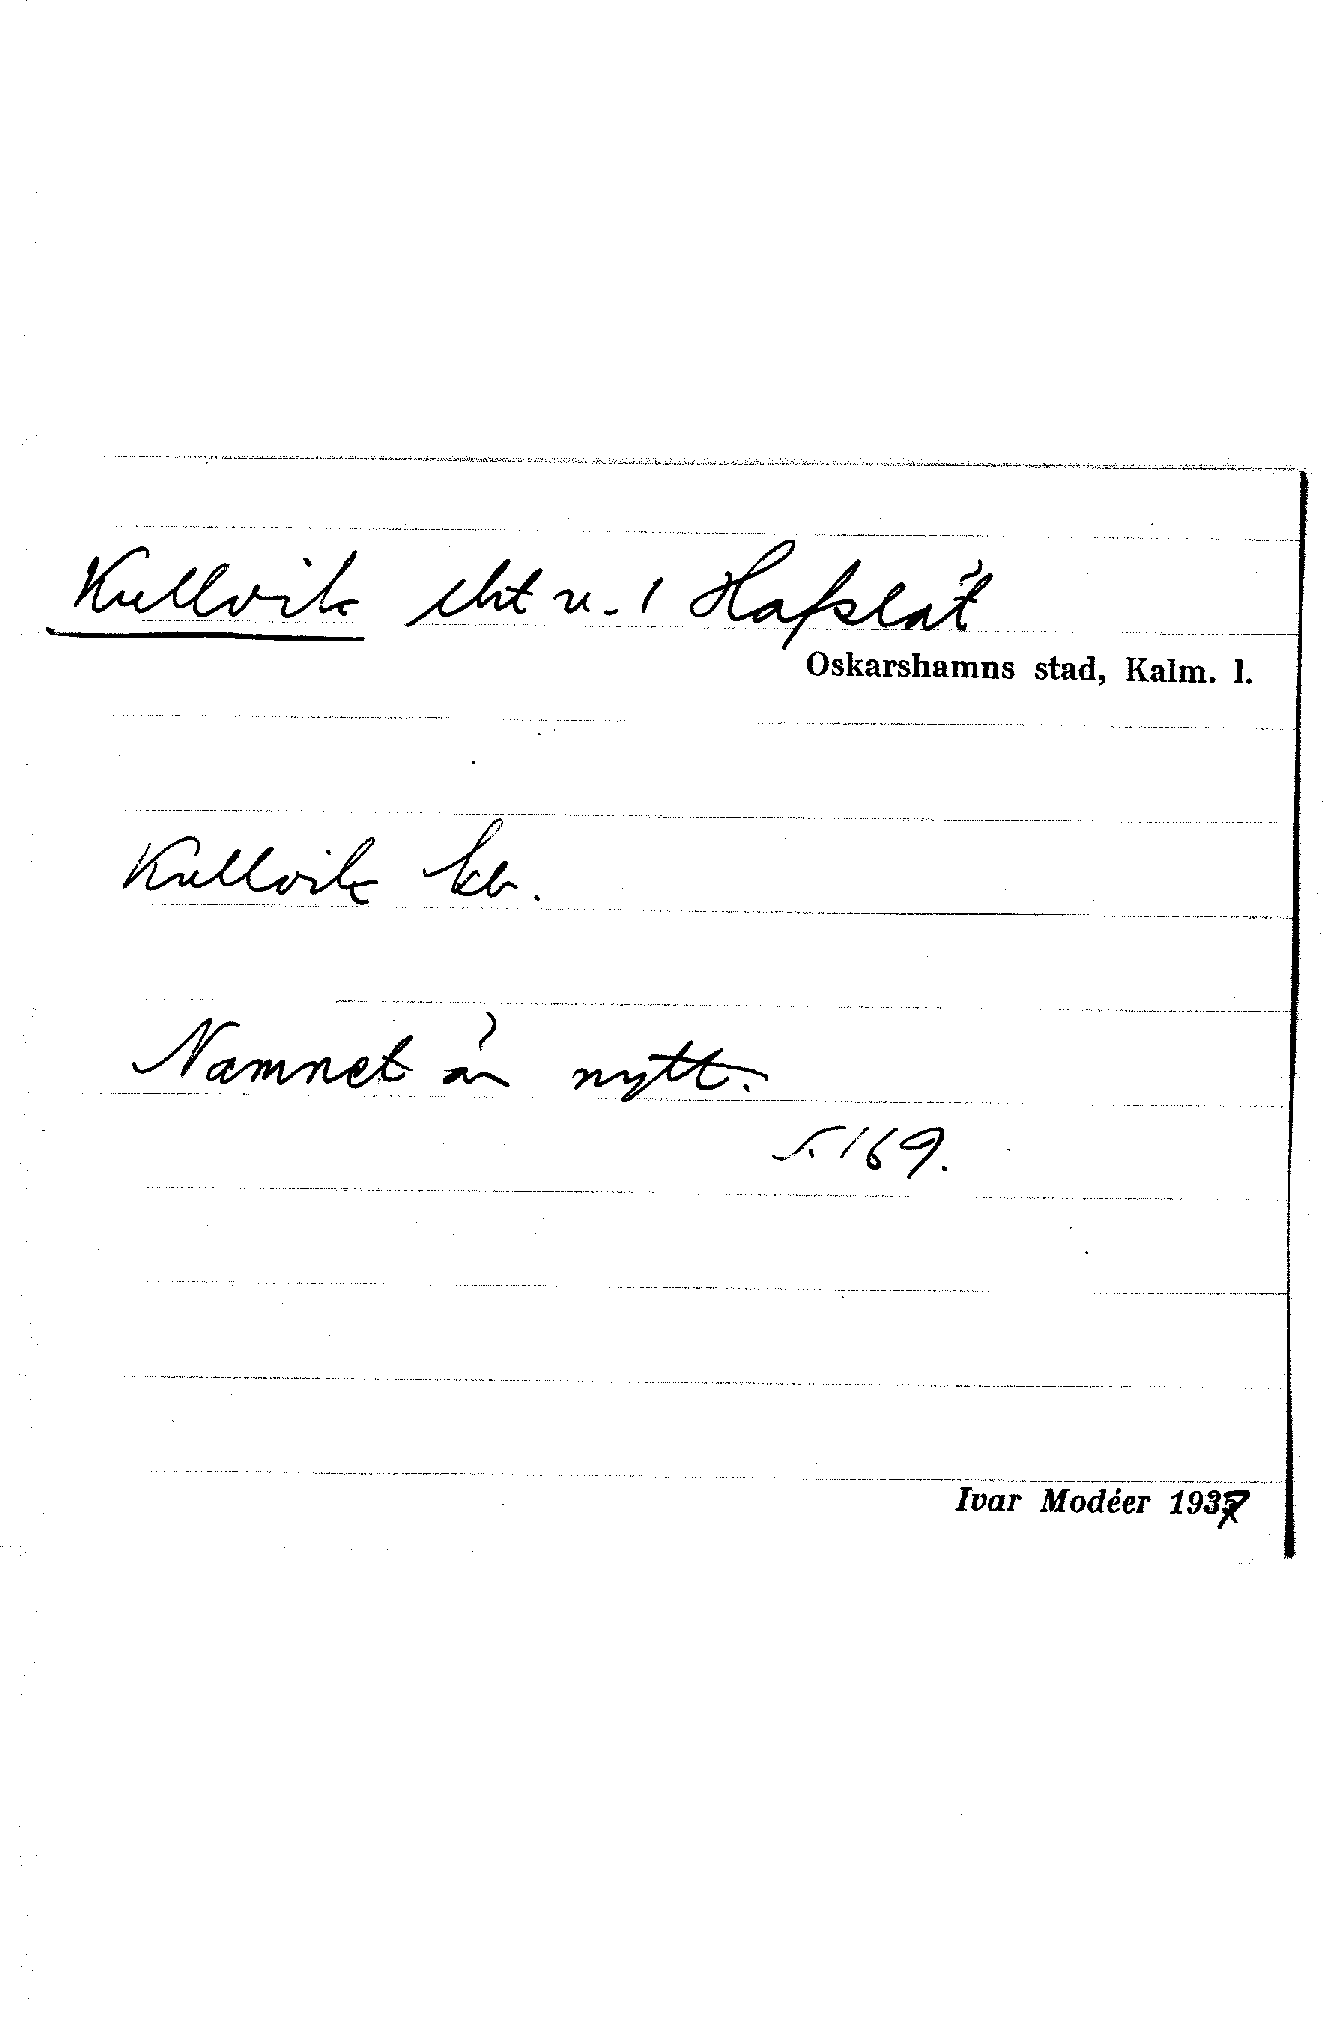 Kullvik lht u. 1 Hafslät
Oskarshamns stad, Kalm. l.
Kullvik kb.
Namnet är nytt.
s. 169.
Ivar Modéer 1937